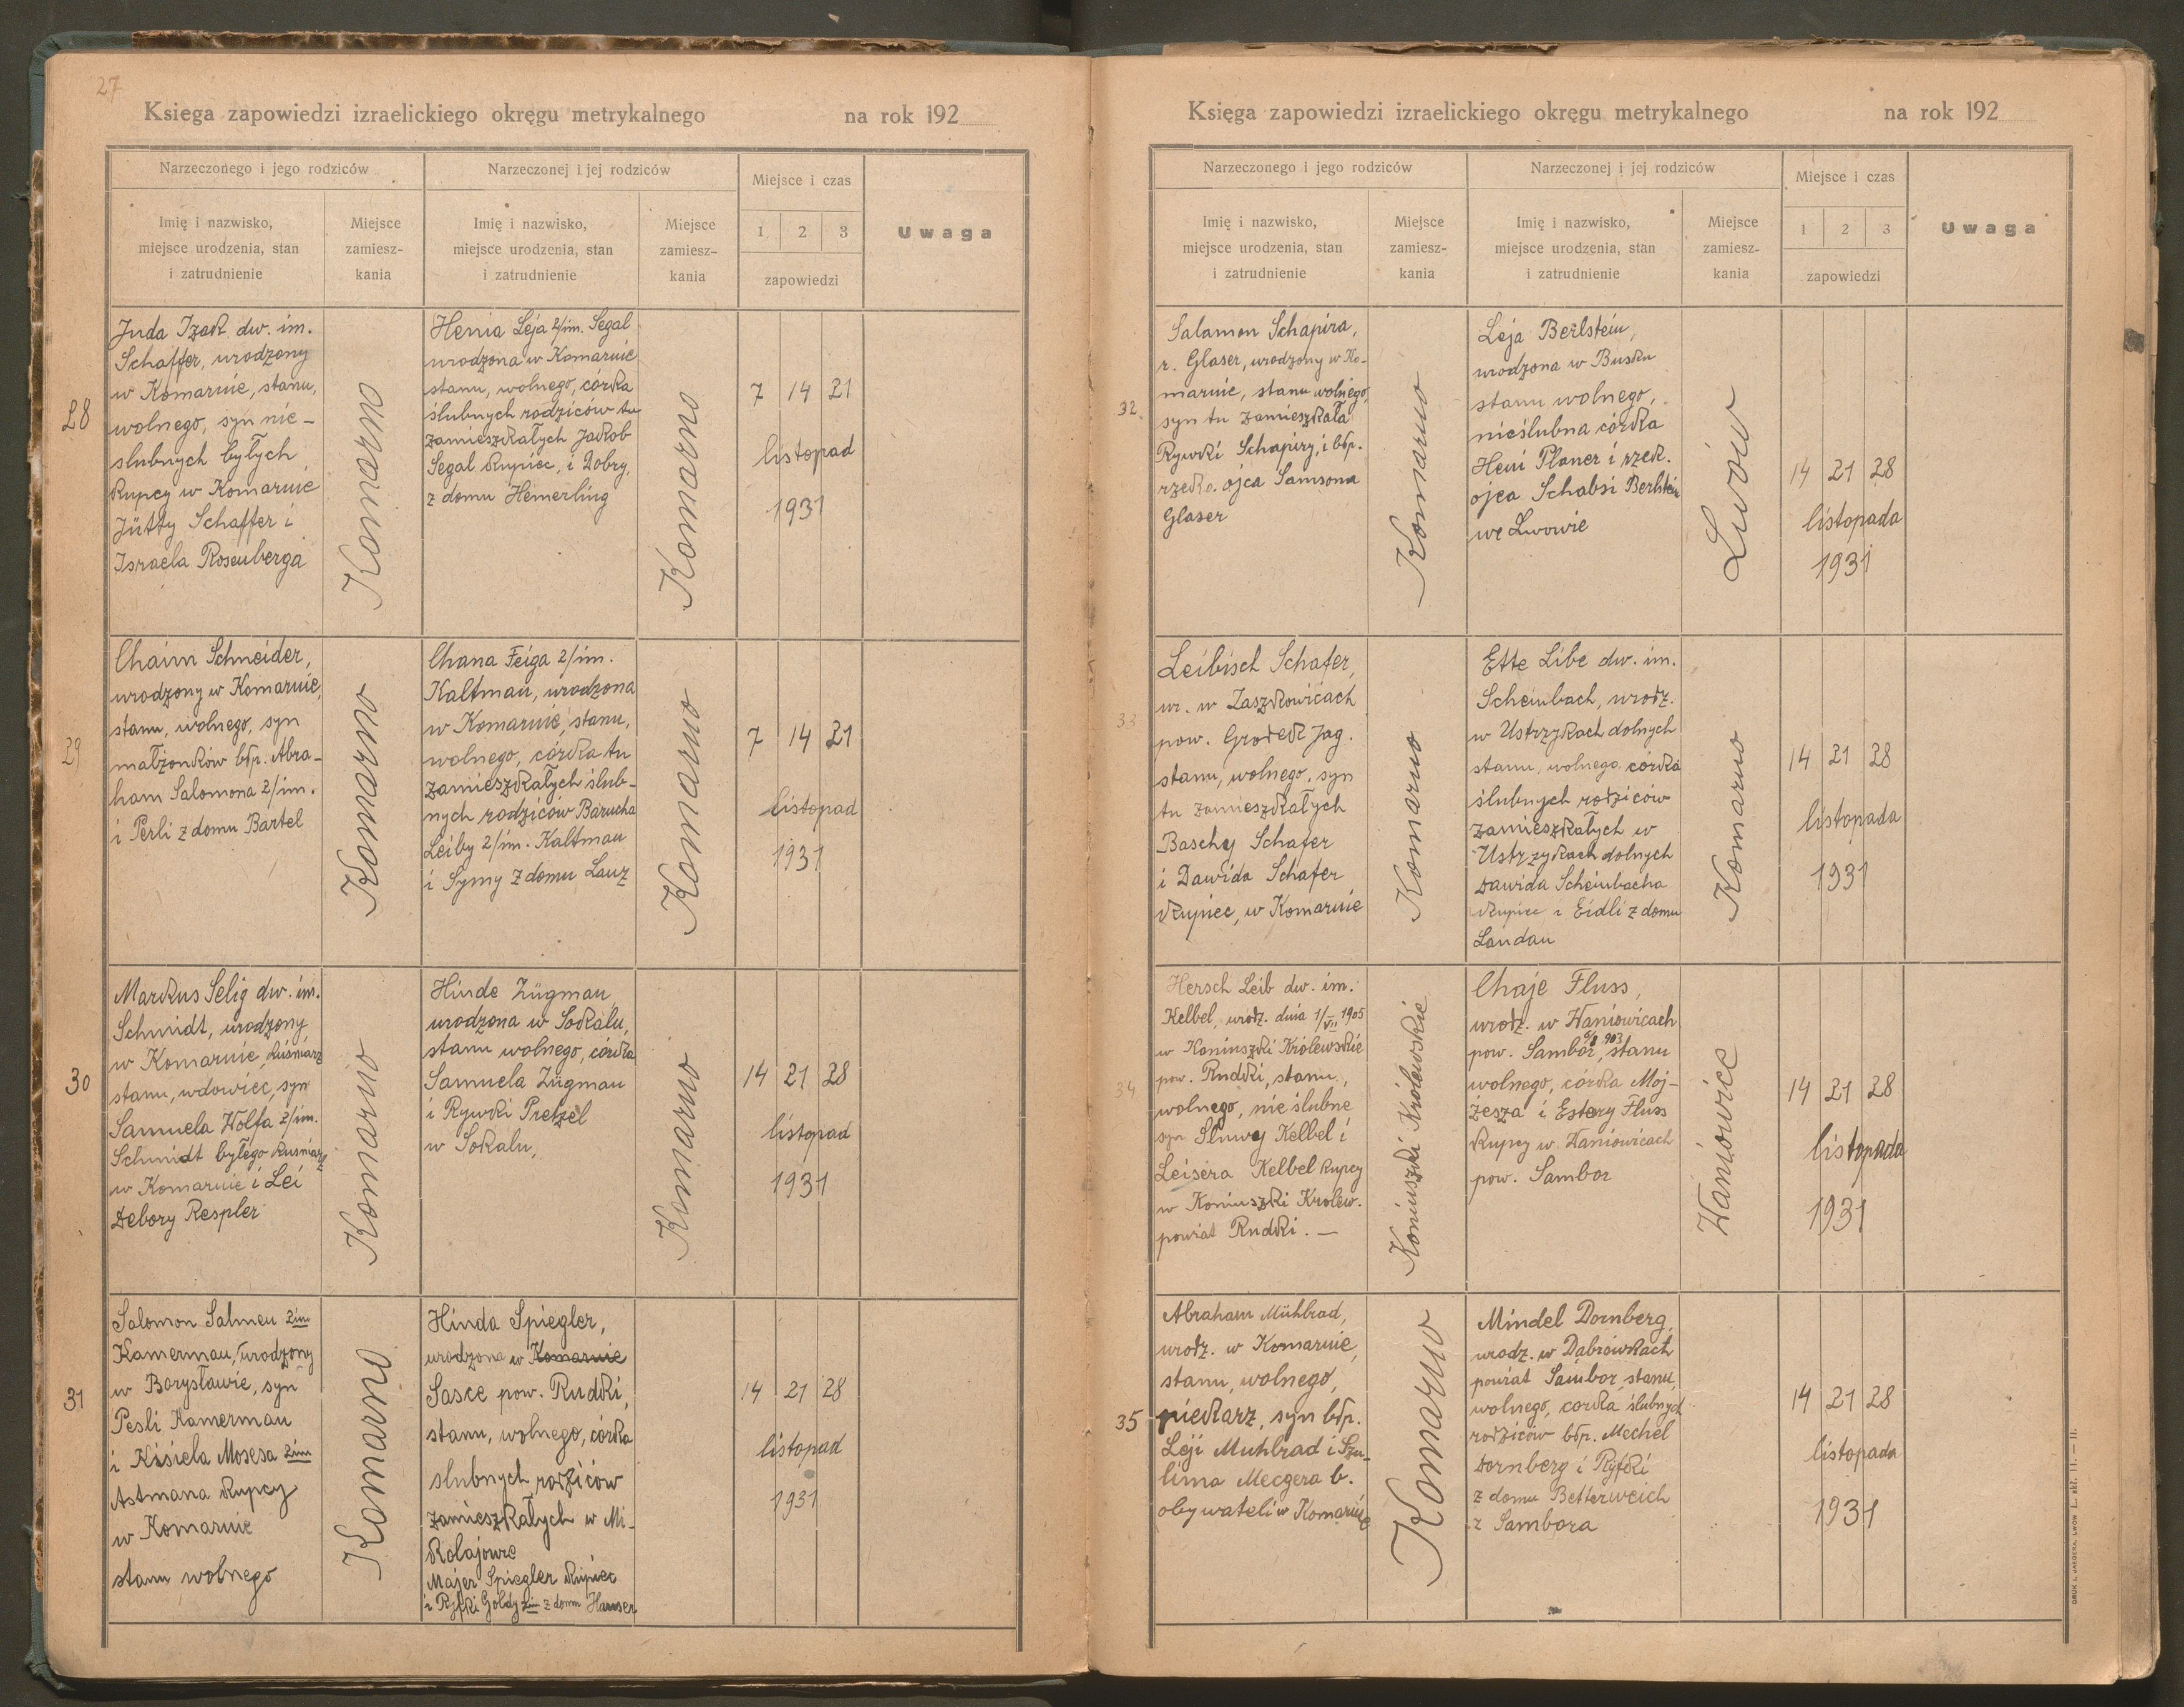 27
Księga zapowiedzi izraelickiego okręgu metrykalnego na rok 192
Narzeczonego i jego rodziców
Narzeczonej i jej rodziców
Miejsce i czas
Imię i nazwisko,
miejsce urodzenia, stan
i zatrudnienie
Miejsce
zamiesz-
kania
Imię i nazwisko,
miejsce urodzenia, stan
i zatrudnienie
Miejsce
zamiesz-
kania
1 2 3
zapowiedzi
Uwaga
28
Juda Izak dw. im.
Schaffer, urodzony
w Komarnie, stanu,
wolnego, syn nie-
slubnych byłych
kupcy w Komarnie
Jütty Schaffer i
Israela Rosenberga
Komarno
Henia Leja 2/im. Segal
urodzona w Komarnie
stanu, wolnego, córka
ślubnych rodziców tu
zamieszkałych Jakob
Segal kupiec, i Dobry,
z domu Hemerling
Komarno
7 14 21
listopad
1931
29
Chaim Schneider,
urodzony w Komarnie,
stanu, wolnego, syn
małżonków błp. Abra-
ham Salomona 2/im.
i Perli z domu Bartel
Komarno
Chana Feiga 2/im.
Kaltman, urodzona
w Komarnie, stanu,
wolnego, córka tu
zamieszkałych ślub-
nych rodziców Barucha
Leiby 2/im. Kaltman
i Symy z domu Lanz
Komarno
7 14 21
listopad
1931
30
Markus Selig dw. im.
Schmidt, urodzony
w Komarnie, kuśnierz
stanu, wdowiec, syn
Samuela Wolfa 2/im.
Schmidt byłego kuśnierz
w Komarnie i Lei
Debory Respler
Komarno
Hinde Zügman
urodzona w Sokalu,
stanu wolnego, córka
Samuela Zügman
i Rywki Pretzel
w Sokalu,
Komarno
14 21 28
listopad
1931
31
Salomon Salmen 2im
Kamerman, urodzony
w Borysławie, syn
Pesli Kamerman
i Kisiela Mosesa 2im
Astmana kupcy
w Komarnie
stanu wolnego
Komarno
Hinda Spiegler,
urodzona w Komarnie
Sasce pow. Rudki,
stanu, wolnego, córka
slubnych rodziców
zamieszkałych w Mi-
kolajowie
Majer Spiegler kupiec
i Ryfki Goldy 2im z domu Hauser
14 21 28
listopad
1931
Księga zapowiedzi izraelickiego okręgu metrykalnego na rok 192
Narzeczonego i jego rodziców
Narzeczonej i jej rodziców
Miejsce i czas
Imię i nazwisko,
miejsce urodzenia, stan
i zatrudnienie
Miejsce
zamiesz-
kania
Imię i nazwisko,
miejsce urodzenia, stan
i zatrudnienie
Miejsce
zamiesz-
kania
1 2 3
zapowiedzi
Uwaga
32
Salamon Schapira,
r. Glaser, urodzony w Ko-
marnie, stanu wolnego,
syn tu zamieszkała
Rywki Schapiry, i błp.
rzeko. ojca Samsona
Glaser
Komarno
Leja Berlstein,
urodzona w Busku
stanu wolnego,
nieślubna córka
Heni Planer i rzek.
ojca Schabsi Berlstein
we Lwowie
Lwów
14 21 28
listopada
1931
33
Leibisch Schafer,
ur. w Zaszkowicach
pow. Grodek Jag.
stanu, wolnego, syn
tu zamieszkałych
Baschy Schafer
i Dawida Schafer
kupiec, w Komarnie
Komarno
Ette Libe dw. im.
Scheinbach, urodz.
w Ustrzykach dolnych
stanu, wolnego, córka
ślubnych rodziców
zamieszkałych w
Ustrzykach dolnych
Dawida Scheinbacha
kupiec i Eidli z domu
Landau
Komarno
14 21 28
listopada
1931
34
Hersch Leib dw. im.
Kelbel, urodz. dnia 1/VII 1905
w Koniuszki Królewskie
pow. Rudki, stanu,
wolnego, nie ślubne
syn Sluwy Kelbel i
Leisera Kelbel kupcy
w Koniuszki Krolew.
powiat Rudki. —
Koniuszki Królewskie
Chaje Fluss,
urodz. w Waniowicach
pow. Sambor, stanu
wolnego, córka Moj-
żesza i Estery Fluss
kupcy w Waniowicach
pow. Sambor
Waniowice
14 21 28
listopada
1931
35
Abraham Mühlrad,
urodz. w Komarnie,
stanu, wolnego,
piekarz, syn błp.
Leji Muhlrad i Szu-
lima Mecgera b.
obywateli w Komarnie
Komarno
Mindel Dornberg,
urodz. w Dąbrówkach
powiat Sambor, stanu,
wolnego, corka ślubnych
rodziców błp. Mechel
Dornberg i Ryfki
z domu Betterweich
z Sambora
14 21 28
listopada
1931
DRUK J. JAEGERA, LWÓW L. skł. 11. — II.